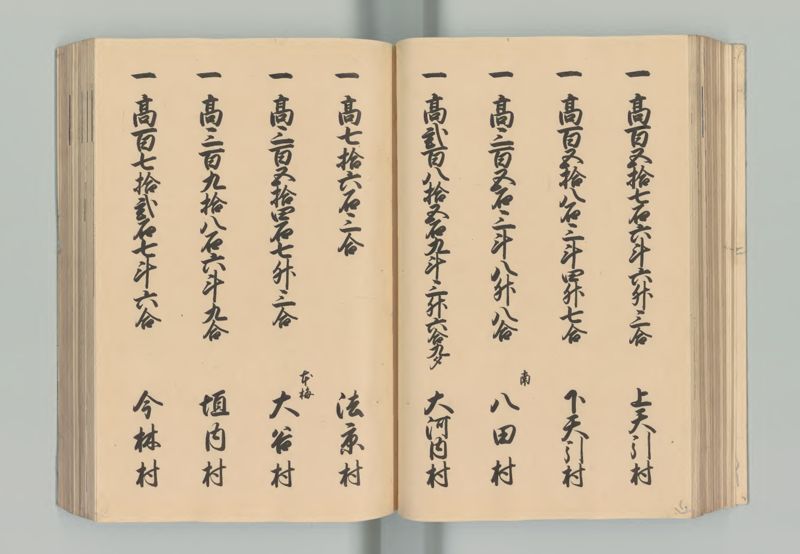 一 髙百五拾七石六斗六升三合 上天引村
一 髙百五拾八石三斗四升七合 下天引村
一 髙三百五石三斗八升八合 南八田村
一 髙弐百八拾五石九斗三升六合九夕 大河内村
一 髙七拾六石三合 法京村
一 髙三百五拾四石七升三合 本梅大谷村
一 髙三百九拾八石六斗九合 垣内村
一 髙百七拾弐石七斗六合 今林村